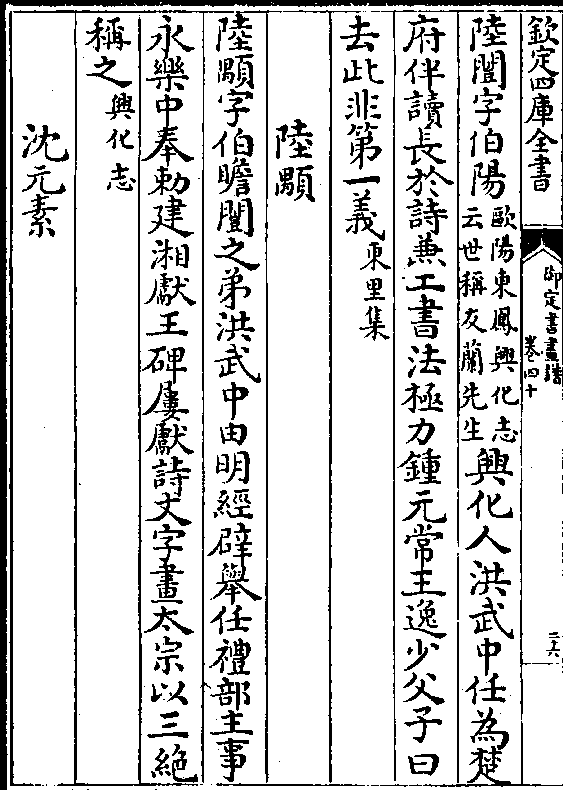 欽定四庫全書
御定書畫譜
卷四十
二六
陸誾字伯陽歐陽東鳳興化志云世稱友蘭先生興化人洪武中任為楚
府伴讀長於詩兼工書法極力鍾元常王逸少父子曰
去此非第一義東里集
陸顒
陸顒字伯瞻誾之弟洪武中由明經辟舉任禮部主事
永樂中奉勅建湘獻王碑屢獻詩文字畫太宗以三絶
稱之興化志
沈元素